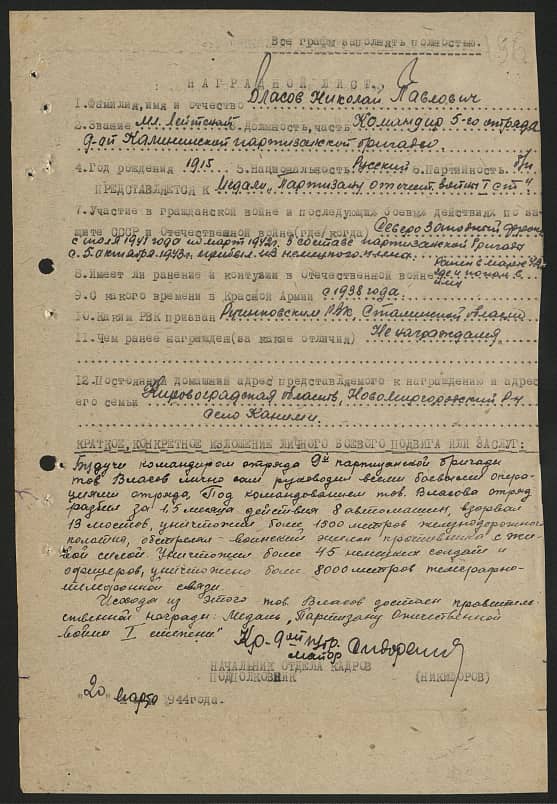 Все графы заполнять полностью.
НАГРАДНОЙ ЛИСТ.
1.Фамилия,имя и отчество Власов Николай Павлович
2.Звание мл. Лейтенант 3.Должность,часть Командир 5-го отряда
9-ой Калининской партизанской бригады.
4.Год рождения 1915 5.Национальность Русский 6.Партийность б/п
ПРЕДСТАВЛЯЕТСЯ К Медали „Партизану отечест. войны I ст."
7.Участие в гражданской войне и последующих боевых действиях по за-
щите СССР и Отечественной войне(где, когда) Северо Западный фронт
с июля 1941 года по март 1942г. В составе партизанской бригады
с 5 октября 1943г. прибыл из немецкого плена.
8.Имеет ли ранение и контузии в Отечественной войне Ранен в марте
где и попал в
плен
9.С какого времени в Красной Армии с 1938 года.
10.Каким РВК призван РВК, Сталинской области
11.Чем ранее награжден(за какие отличия) Не награждался
12.Постоянный домашний адрес представляемого к награждению и адрес
его семьи Кировоградская область, Новомиргородский р-н
село
КРАТКОЕ,КОНКРЕТНОЕ ИЗЛОЖЕНИЕ ЛИЧНОГО БОЕВОГО ПОДВИГА ИЛИ ЗАСЛУГ:
Будучи командиром отряда 9й партизанской бригады
тов. Власов лично сам руководил всеми боевыми опера-
циями отряда. Под командованием тов. Власова отряд
разбил за 1,5 месяца действия 8 автомашин, взорвал
13 мостов, уничтожил более 1300 метров железнодорожного
полотна, обстрелял воинский эшелон противника с жи-
вой силой. Уничтожил более 45 немецких солдат и
офицеров, уничтожено более 8000 метров телеграфно-
телефонной связи.
Исходя из этого тов. Власов достоин правитель-
ственной награды: Медаль „Партизану Отечественной
войны I степени"
майор
НАЧАЛЬНИК ОТДЕЛА КАДРОВ
ПОДПОЛКОВНИК (НИКИФОРОВ)
„20" марта 1944года.